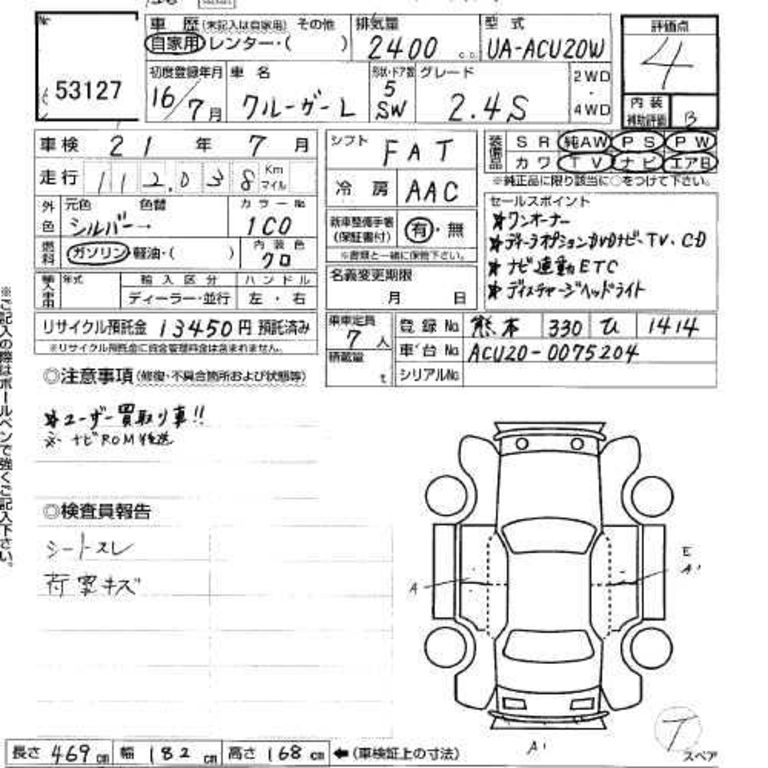 No
53127
車歴(未記入は自家用) その他
自家用 レンター・( )
排気量
2400 c.c.
型式
UA-ACU20W
評価点
4
内装
補助評価 B
初度登録年月
16/7月
車名
クルーガーL
形状・ドア数
5
SW
グレード
2.4S
2WD
・
4WD
車検 21年7月
シフト FAT
装備品
SR 純AW PS PW
カワ TV ナビ エアB
※純正品に限り該当に○をつけて下さい。
走行 112,038 Km マイル
冷房 AAC
外色
元色 色替
シルバー→
カラーNo
1C0
新車整備手帳
(保証書付)
有・無
※書類と一緒に保管下さい。
セールスポイント
*ワンオーナー
*ディーラオプションDVDナビ・TV・CD
*ナビ連動ETC
*ディスチャージヘッドライト
燃料
ガソリン・軽油・( )
内装色
クロ
名義変更期限
月 日
輸入車用
年式
輸入区分
ディーラー・並行
ハンドル
左・右
リサイクル預託金 13450円 預託済み
※リサイクル預託金に資金管理料金は含まれません。
乗車定員
7人
積載量
t
登録No 熊本 330 ひ 1414
車台No ACU20-0075204
シリアルNo
◎注意事項(修復・不具合箇所および状態等)
*ユーザー買取り車!!
※ナビROM後送
◎検査員報告
シートスレ
荷室キズ
※ご記入の際はボールペンで強くご記入下さい。
A
E
A'
A'
T
スペア
長さ 469cm 幅 182cm 高さ 168cm ←(車検証上の寸法)